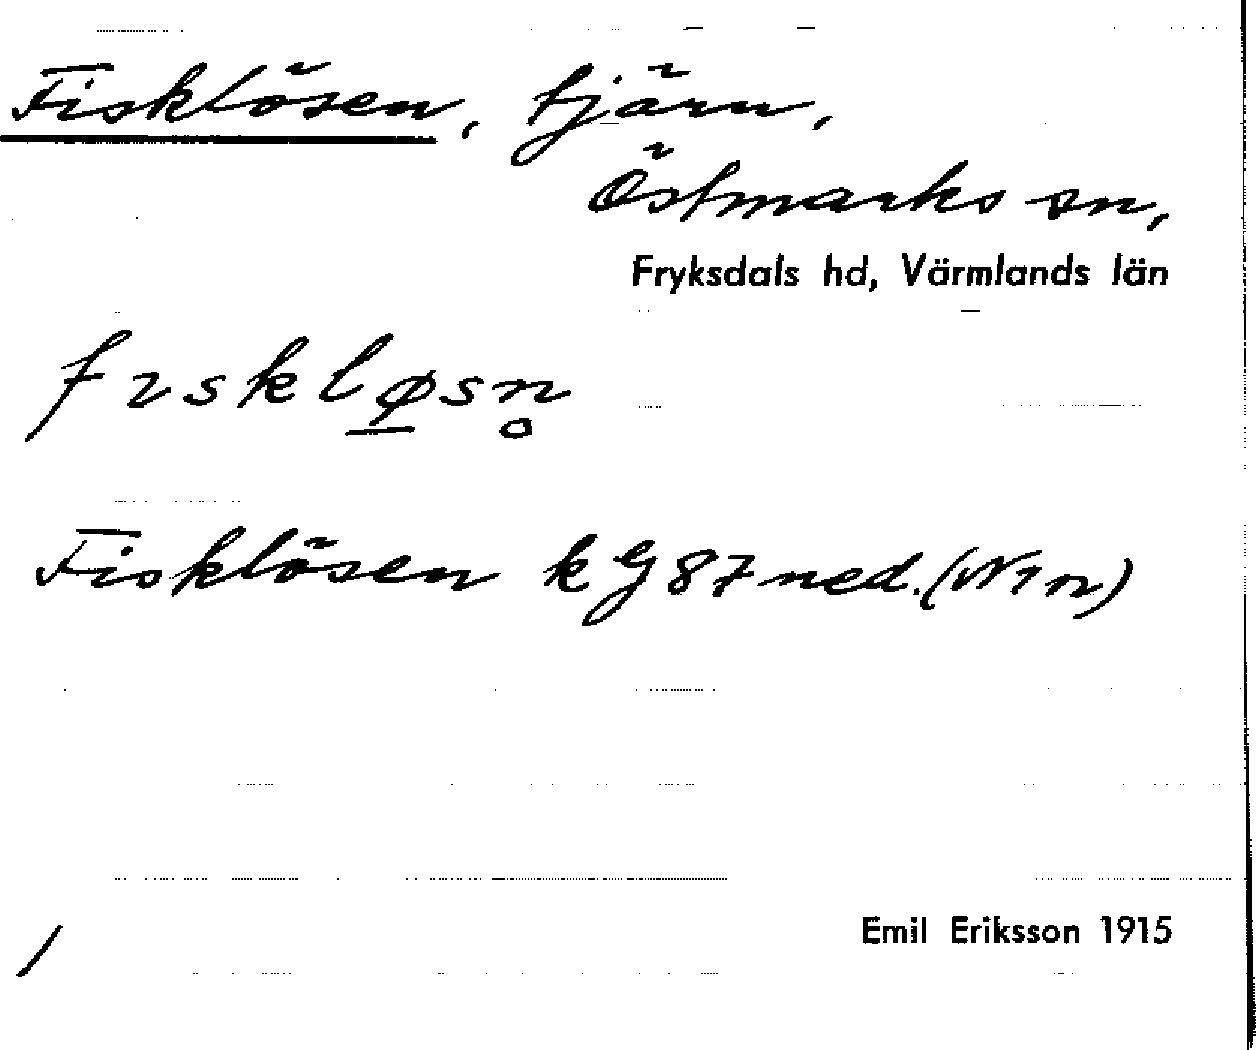 Fisklösen, tjärn,
Östmarks sn,
Fryksdals hd, Värmlands län
fɪsklø̠sn̥
Fisklösen k G 87 ned.
Emil Eriksson 1915
/